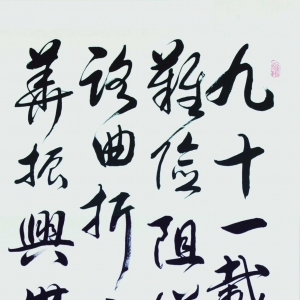 九十一載
難險阻
路曲折
華振興